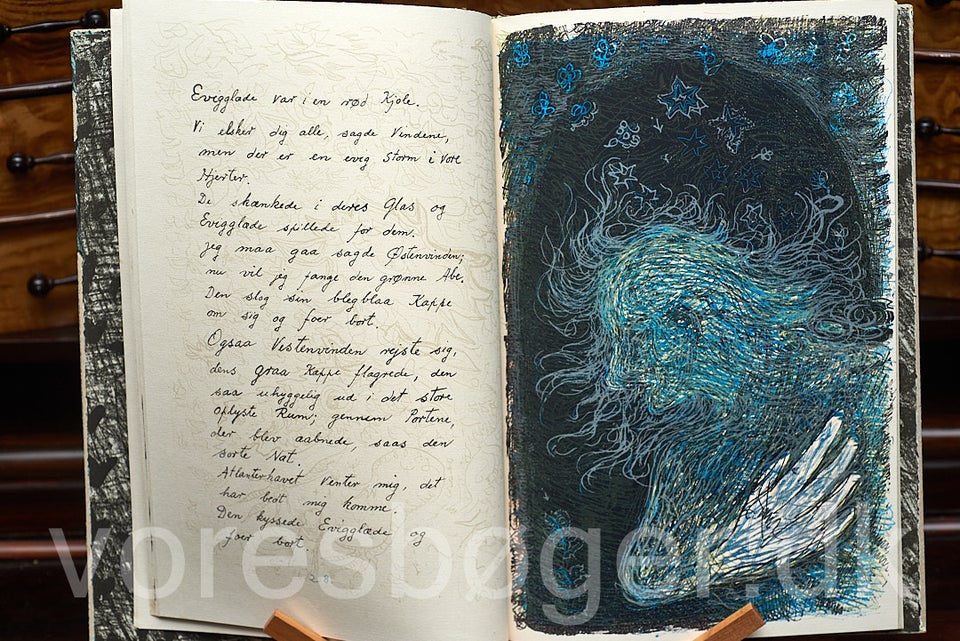 Evigglade var i en rød Kjole.
Vi elsker dig alle, sagde Vindene,
men der er en evig Storm i vore
Hjerter.
De skænkede i deres Glas og
Evigglade spillede for dem.
jeg maa gaa sagde Østenvinden;
nu vil jeg fange den grønne Abe.
Den slog sin blegblaa Kappe
om sig og foer bort.
Ogsaa Vestenvinden rejste sig,
dens graa Kappe flagrede, den
saa uhyggelig ud i det store
oplyste Rum; gennem Portene,
der blev aabnede, saas den
sorte Nat.
Atlanterhavet venter mig, det
har bedt mig komme.
Den kyssede Evigglæde og
foer bort.
28
voresbøger.dk